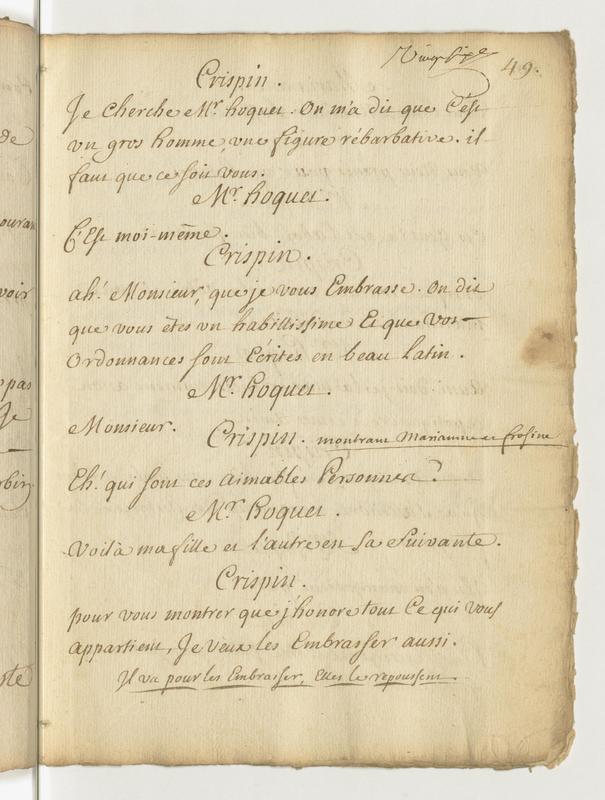 49.
Crispin.
Je Cherche Mr. hoquet. On m'a dit que C'est
vn gros homme, vne figure rébarbative. il
faut que ce soit vous.
Mr. hoquet.
C'Est moi-même.
Crispin.
ah! Monsieur, que je vous Embrasse. On dit
que vous êtes vn habillissime Et que vos
Ordonnances sont Ecrites en beau latin.
Mr. hoquet.
Monsieur.
Crispin. montrant Marianne et frosine
Eh! qui sont ces aimables Personnes?
Mr. hoquet.
Voilà ma fille et l'autre en sa suivante.
Crispin.
pour vous montrer que j'honore tout Ce qui vous
appartient, Je veux les Embrasser aussi.
Il va pour les Embrasser, Elles le repoussent.